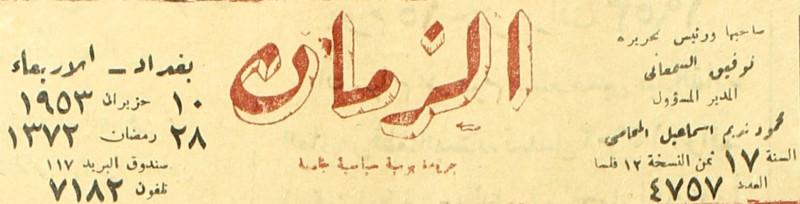 صاحبها ورئيس تحريره
توفيق السمعاني
المدير المسؤول
محمود نديم اسماعيل المحامي
السنة ١٧ ثمن النسخة ١٢ فلسا
العدد ٤٧٥٧
الزمان
جريدة يومية سياسية عامة
بغداد - الاربعاء
١٠ حزيران ١٩٥٣
٢٨ رمضان ١٣٧٢
صندوق البريد ١١٧
تلفون ٧١٨٢